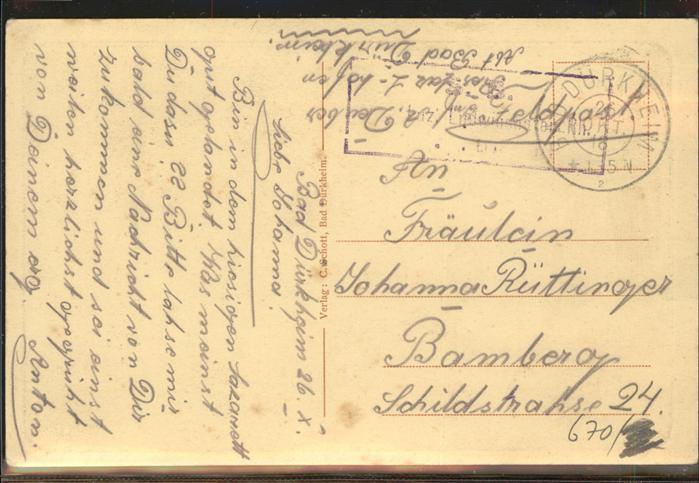 Bad Dürkheim 26. X.
Liebe Johanna!
Bin in dem hiesigen Lazarett
gut gelandet. Was meinst
Du dazu?? Bitte lasse mir
bald eine Nachricht von Dir
zukommen und sei einst
weilen herzlichst gegrüßt
von Deinem
Anton.
Verlag: C. Schott, Bad Dürkheim.
Abt Bad
Dürkheim.
Feldpost
DÜRKHEIM
26
An
Fräulein
Johanna Rüttinger
Bamberg
Schildstrahse 24.
670/